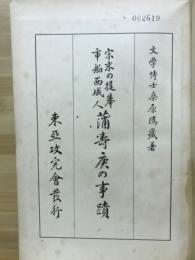 002619
文學博士桑原隲藏著
宋末の提擧
市舶西域人
蒲壽庚の事蹟
東亞攻究會發行